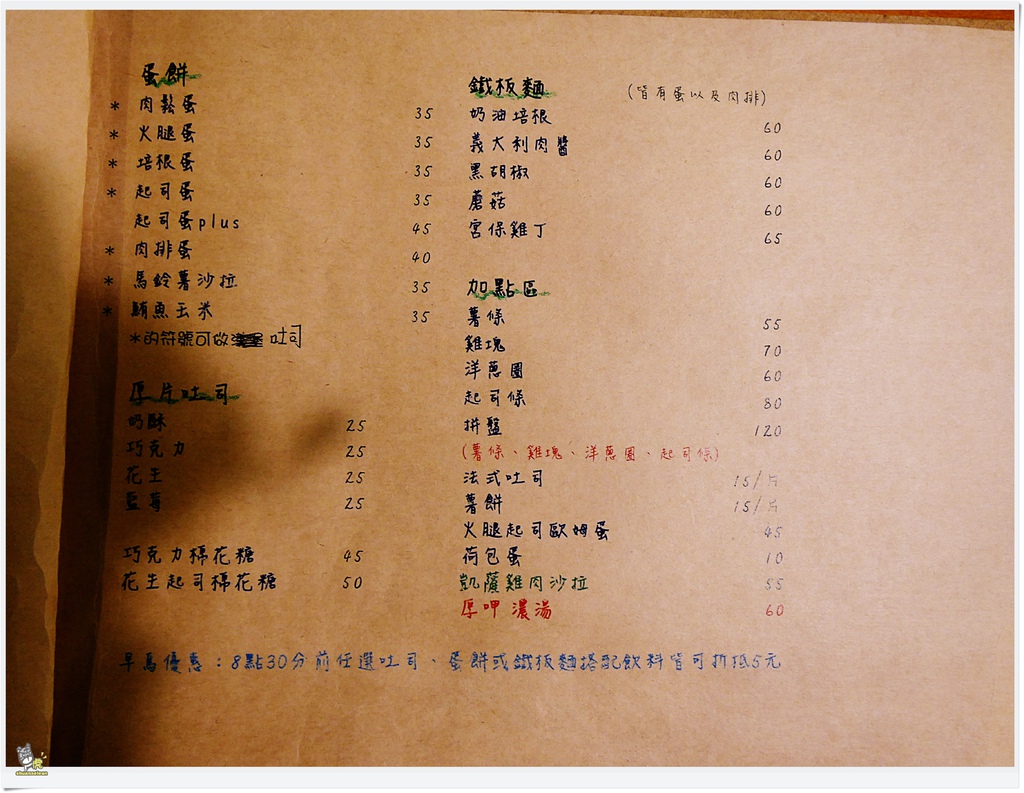 蛋餅
* 肉鬆蛋 35
* 火腿蛋 35
* 培根蛋 35
* 起司蛋 35
起司蛋plus 45
* 肉排蛋 40
* 馬鈴薯沙拉 35
* 鮪魚玉米 35
*的符號可做 吐司
厚片吐司
奶酥 25
巧克力 25
花生 25
藍莓 25
巧克力棉花糖 45
花生起司棉花糖 50
鐵板麵 (皆有蛋以及肉排)
奶油培根 60
義大利肉醬 60
黑胡椒 60
蘑菇 60
宮保雞丁 65
加點區
薯條 55
雞塊 70
洋蔥圈 60
起司條 80
拼盤 120
(薯條、雞塊、洋蔥圈、起司條)
法式吐司 15/片
薯餅 15/片
火腿起司歐姆蛋 45
荷包蛋 10
凱薩雞肉沙拉 55
厚呷濃湯 60
早鳥優惠:8點30分前任選吐司、蛋餅或鐵板麵搭配飲料皆可折抵5元